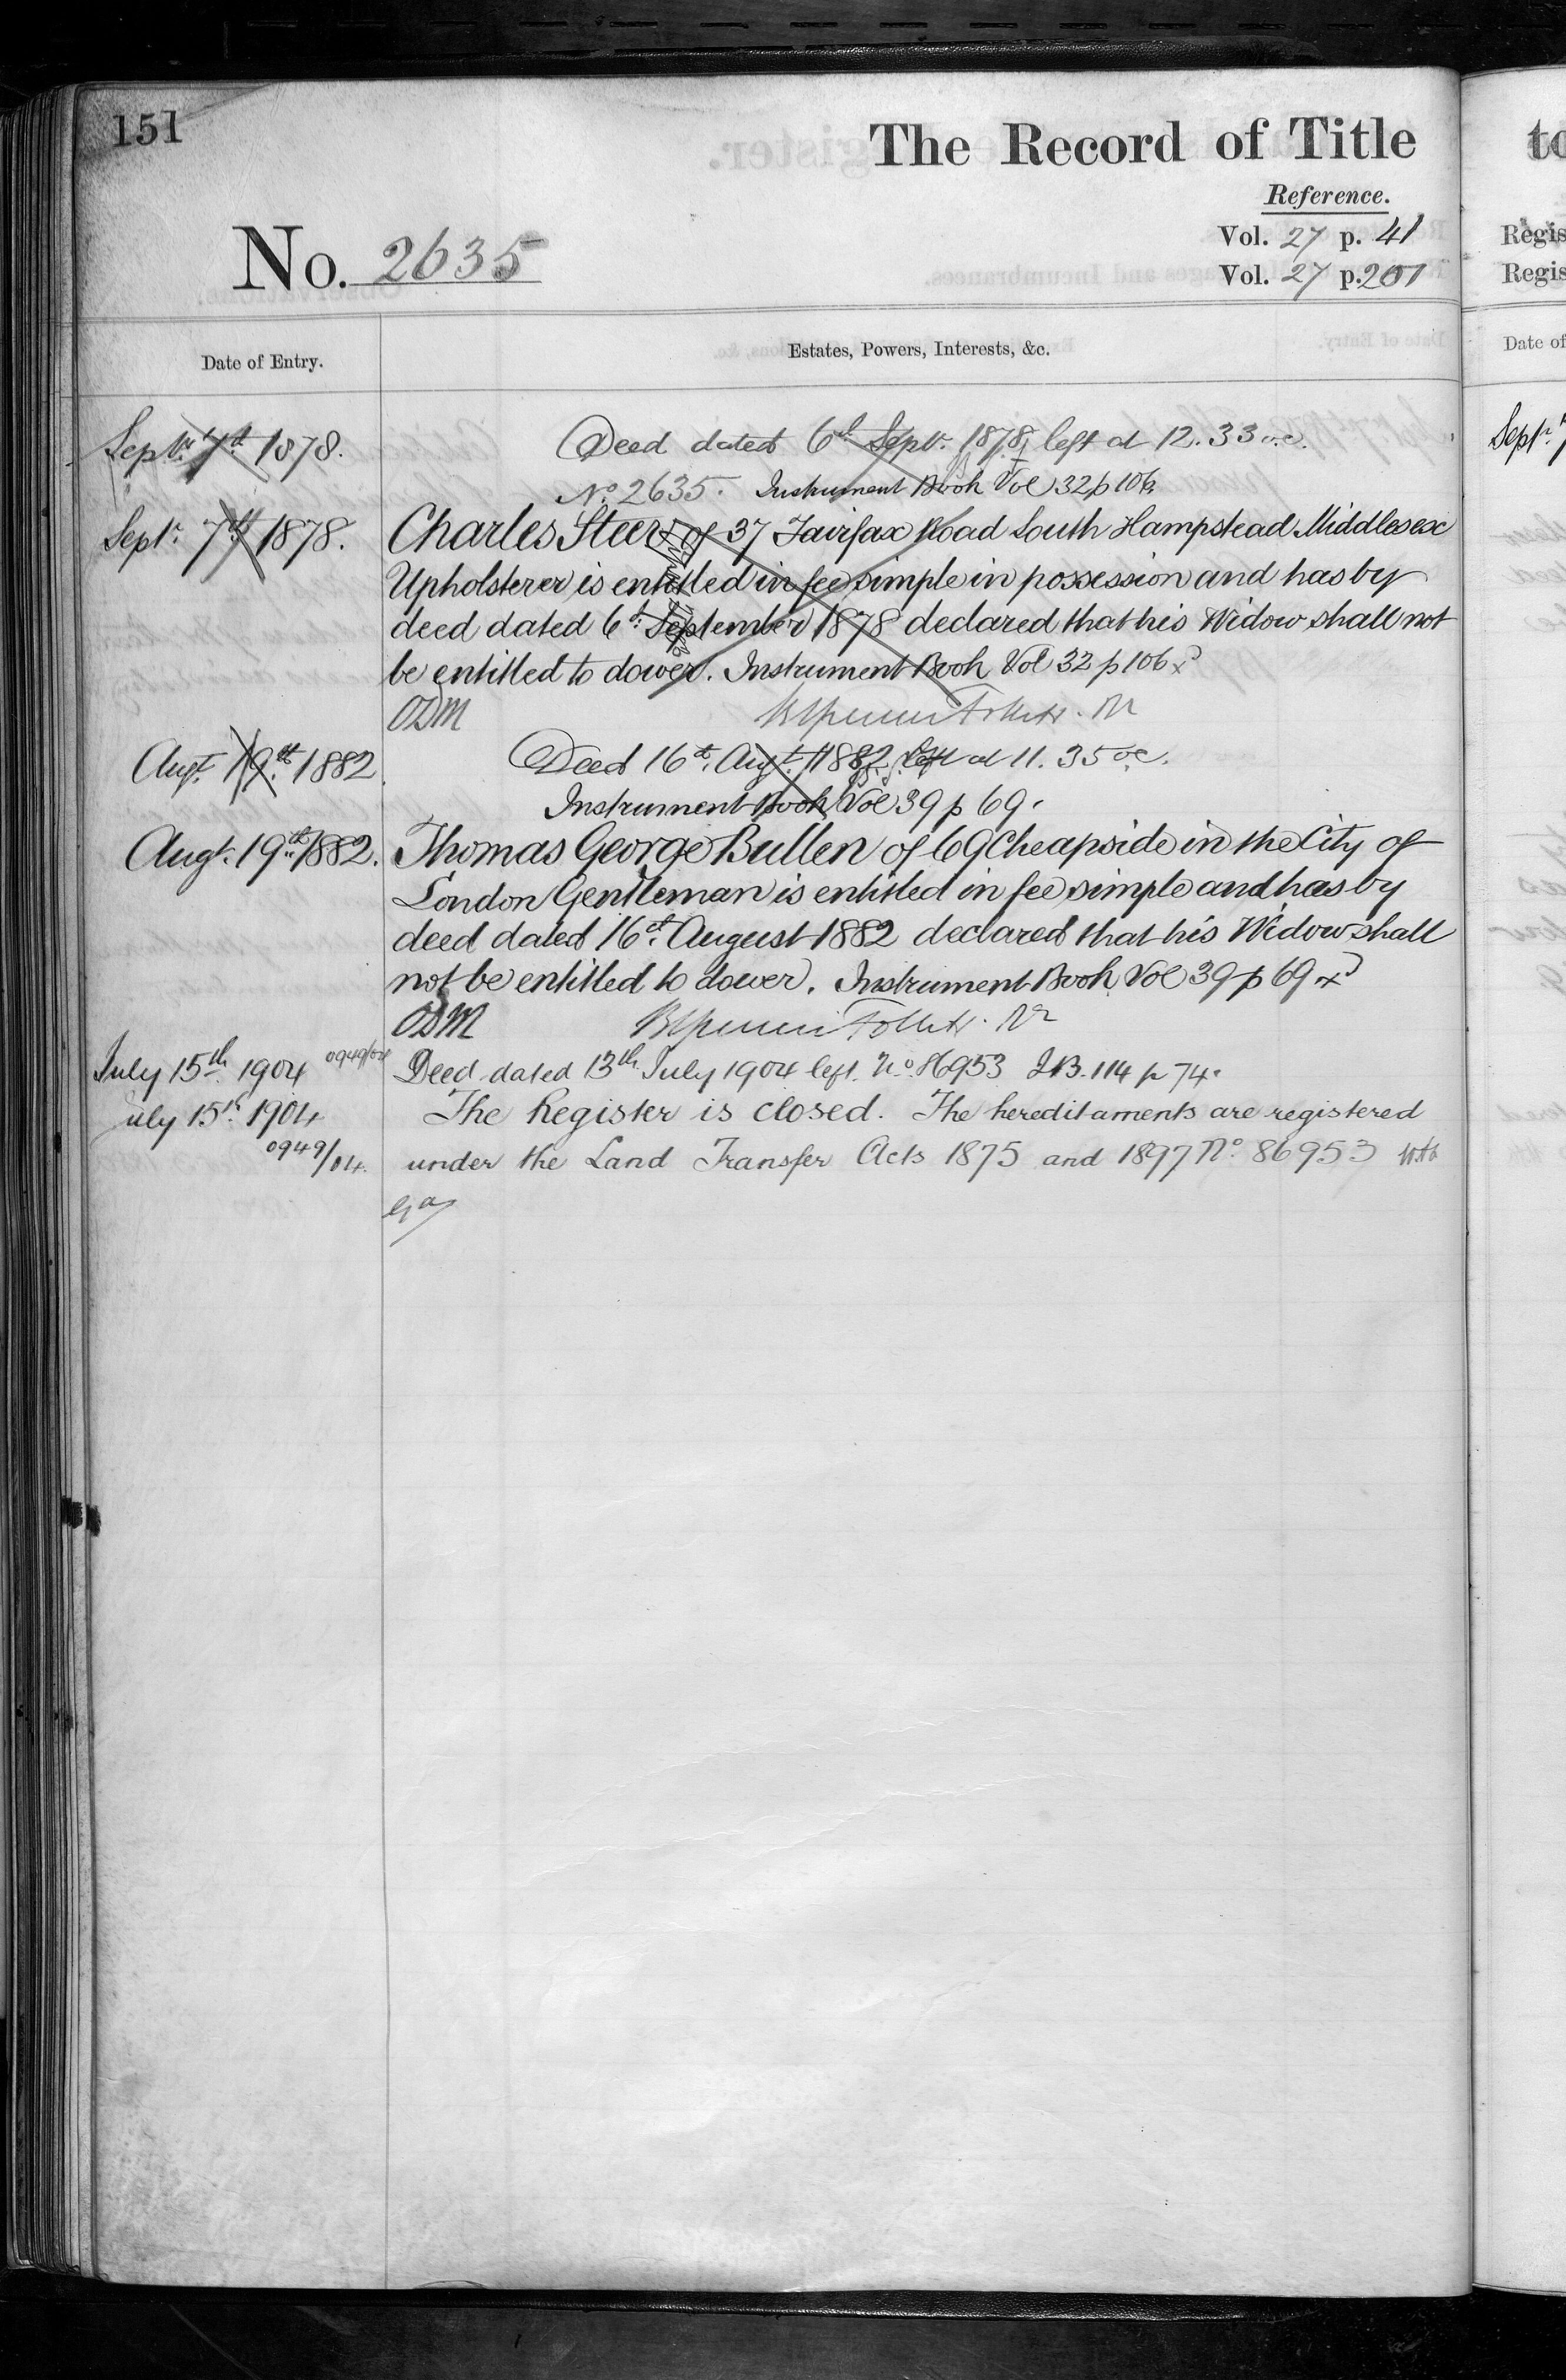 151
The Record of Title
Reference.
No. 2635
Vol. 27 p. 41
Vol. 27 p. 201
Date of Entry.
Estates, Powers, Interests, &c.
Septr. 7th 1878.
Deed dated 6th Septr. 1878 left at 12.33 oc.
No. 2635. Instrument Book Vol 32 p 106
Septr. 7th 1878.
Charles Steer of 37 Fairfax Road South Hampstead Middlesex
Upholsterer is entitled in fee simple in possession and has by
deed dated 6th September 1878 declared that his Widow shall not
be entitled to dower. Instrument Book Vol 32 p 106
ODM
Augt. 19th 1882
Deed 16th Augt. 1882 left at 11.35 oc.
Instrument Book Vol 39 p 69.
Augt. 19th 1882.
Thomas George Bullen of 69 Cheapside in the City of
London Gentleman is entitled in fee simple and has by
deed dated 16th August 1882 declared that his Widow shall
not be entitled to dower. Instrument Book Vol 39 p 69
ODM
July 15th 1904 0949/04
Deed dated 13th July 1904 left. No. 86953 I.B. 114 p 74.
July 15th 1904
0949/04.
The Register is closed. The hereditaments are registered
under the Land Transfer Acts 1875 and 1897 No. 86953
to
Regis
Regis
Date of
Septr.